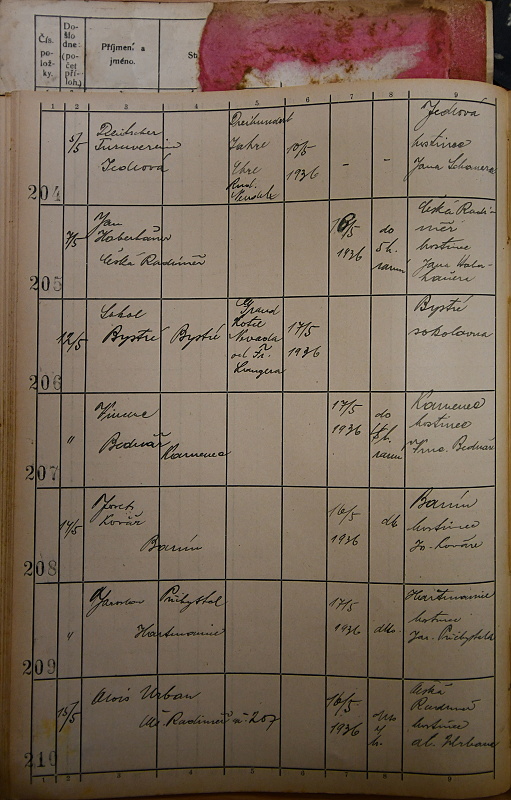 Čís. polož-ky.
Do-šlo dne: (po-čet pří-loh.)
Příjmení a jméno.
1 2 3 4 5 6 7 8 9
204
5/5
Deutscher
Turnverein
Jedlová
Dreihundert
Jahre
Ehre
10/5
1936
- -
Jedlová
hostinec
Jana
205
7/5
Jan
Haberhauer
Česká Radiměř
16/5
1936
do
5 h.
ranní
Česká Radi-
měř
hostinec
Jana Haber-
hauera
206
12/5
Sokol
Bystré Bystré
Grand
Hotel
Nevada
od Fr.
Langera
17/5
1936
Bystré
sokolovna
207
"
Vincenc
Bednář
Kamenec
17/5
1936
do
4 h.
ranní
Kamenec
hostinec
Vinc. Bednář
208
14/5
Josef
Kovář
Banín
16/5
1936
dto
Banín
hostinec
Jo. Kováře
209
"
Jaroslav Přichystal
Hartmanice
17/5
1936
dtto.
Hartmanice
hostinec
Jar. Přichystala
210
15/5
Alois Urban
Čes. Radiměř č. 207
16/5
1936
dtto
4
h.
Česká
Radiměř
hostinec
al. Urbana
1 2 3 4 5 6 7 8 9